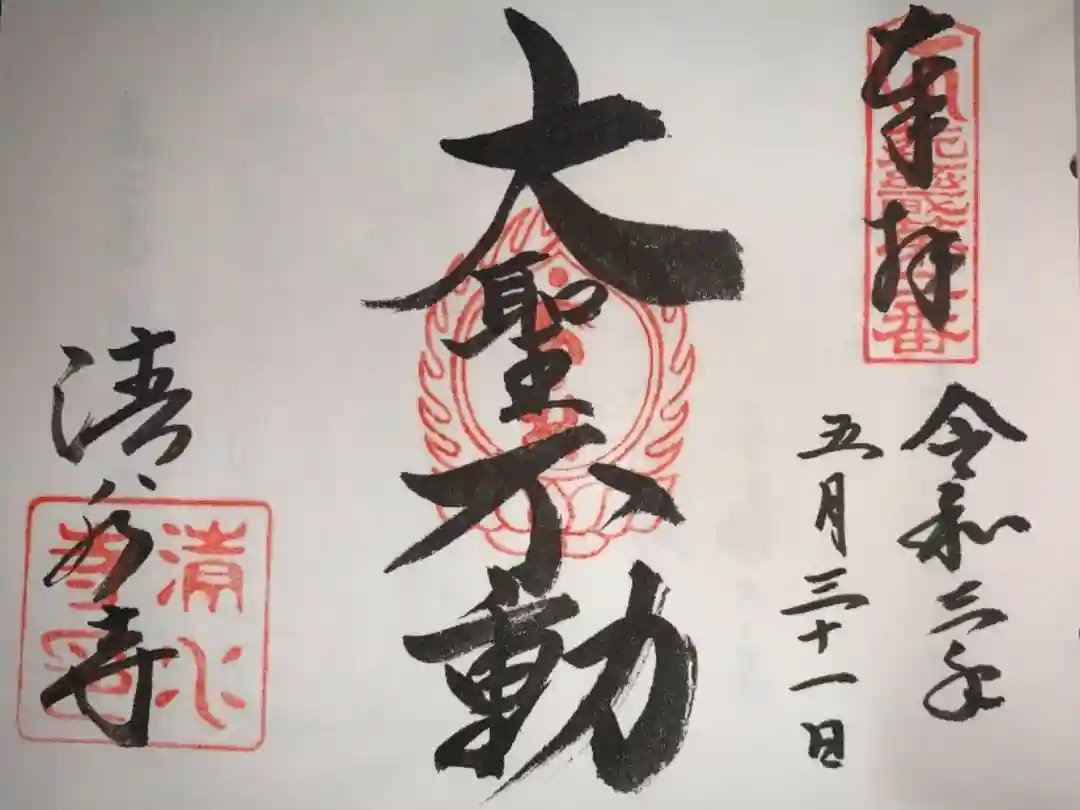 奉拝
令和三年
五月三十一日
大聖不動
清水寺
清水
寺印